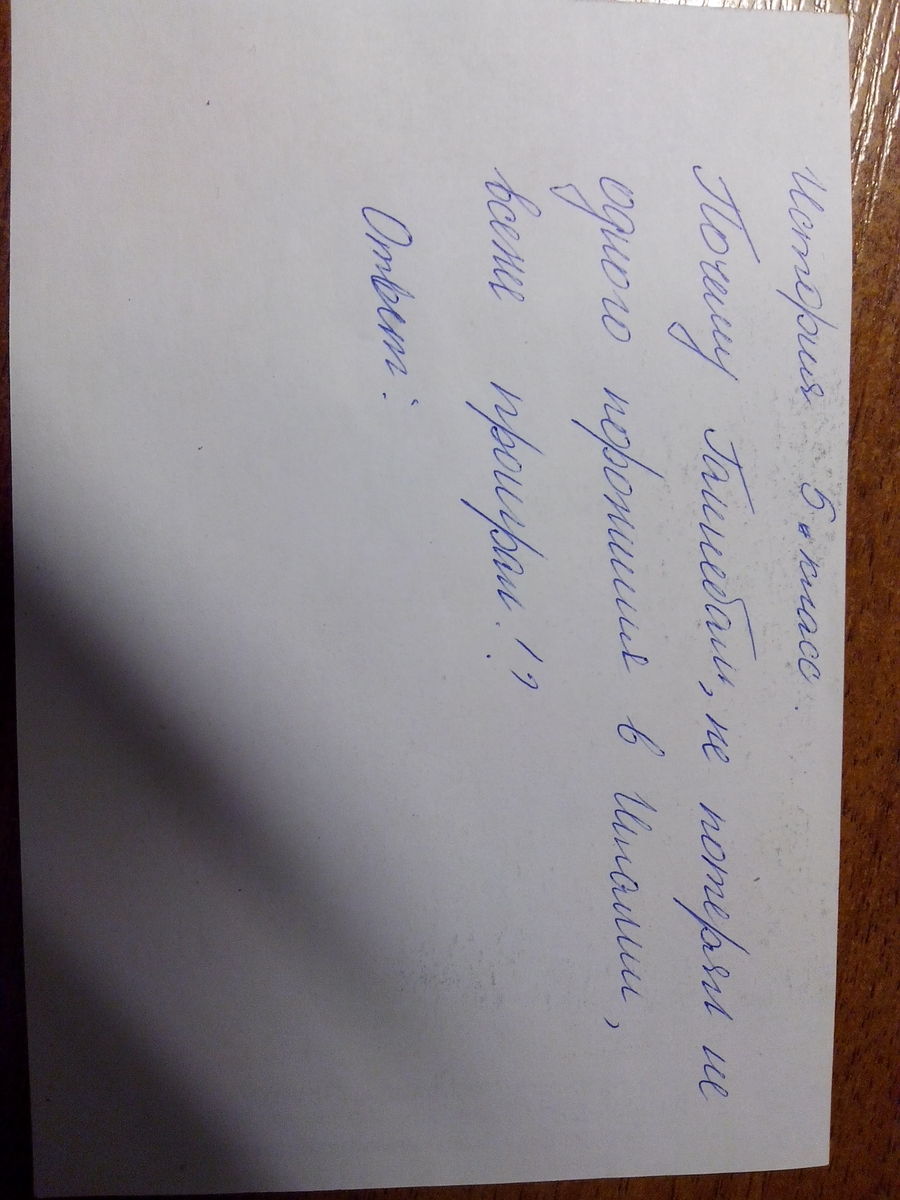 История 5 класс.
Почему Ганнебал, не потерял не
одного поражния в Италии,
всеже проиграл!?
Ответ: